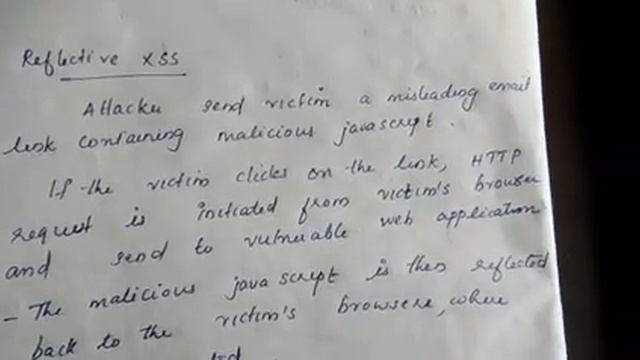 Reflective XSS
Attacker send victim a misleading email
link containing malicious javascript.
If the victim clicks on the link, HTTP
request is initiated from victim's browser
and send to vulnerable web application
- The malicious java script is then reflected
back to the victim's browsere, where